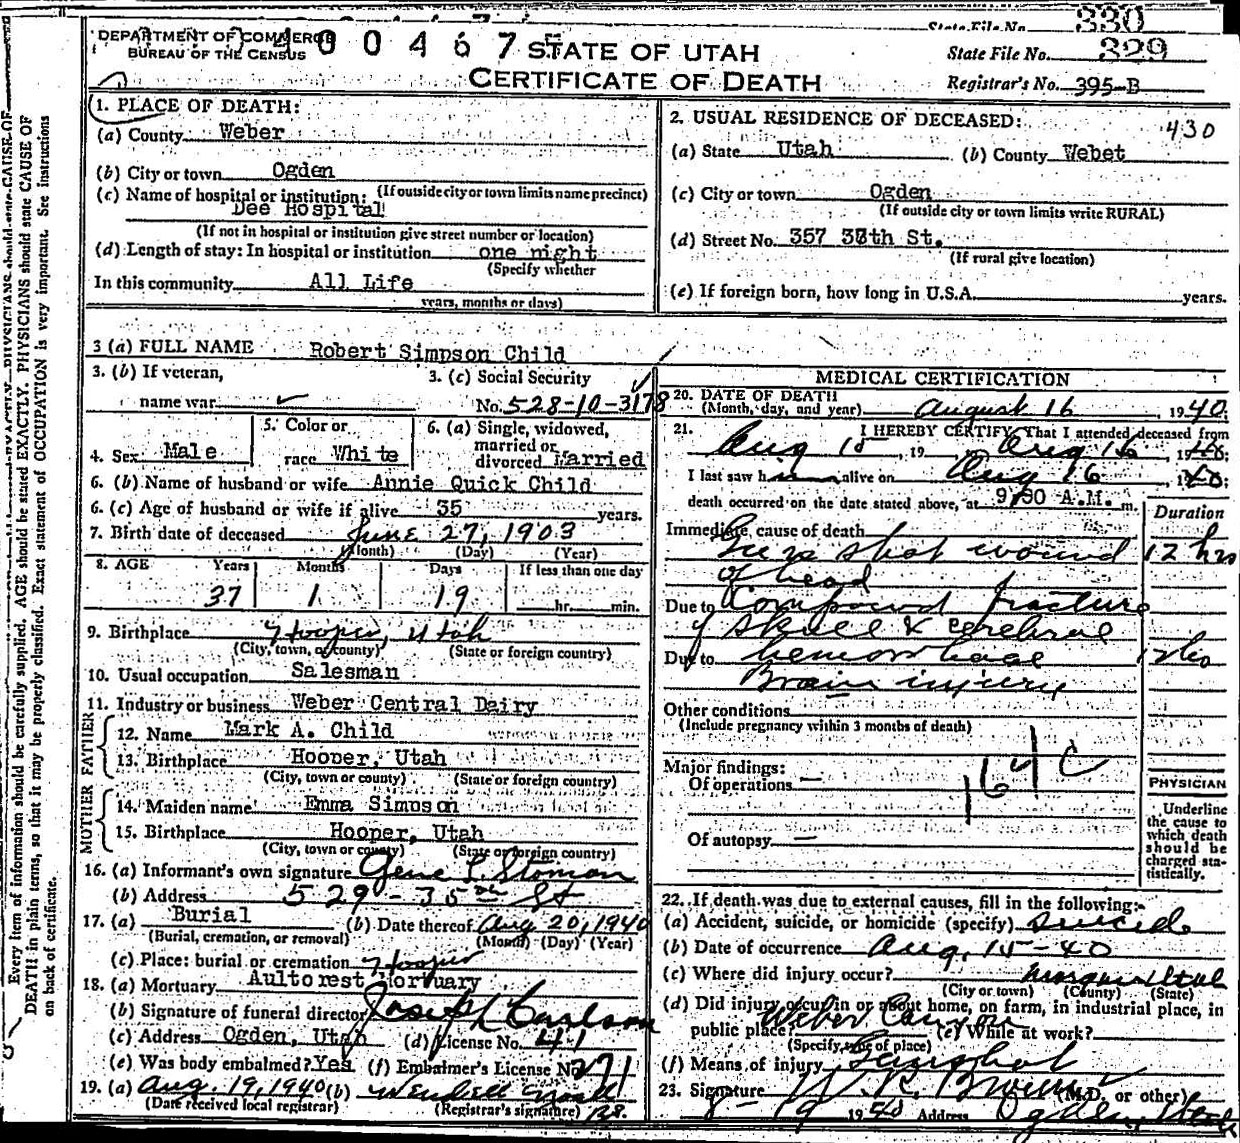 State File No. 330
DEPARTMENT OF COMMERCE
BUREAU OF THE CENSUS
400467
STATE OF UTAH
CERTIFICATE OF DEATH
State File No. 329
Registrar's No. 395-B
1. PLACE OF DEATH:
(a) County Weber
(b) City or town Ogden
(If outside city or town limits name precinct)
(c) Name of hospital or institution:
Dee Hospital
(If not in hospital or institution give street number or location)
(d) Length of stay: In hospital or institution one night
(Specify whether
In this community All Life
years, months or days)
2. USUAL RESIDENCE OF DECEASED:
430
(a) State Utah (b) County Webet
(c) City or town Ogden
(If outside city or town limits write RURAL)
(d) Street No. 357 St.
(If rural give location)
(e) If foreign born, how long in U.S.A. years.
3 (a) FULL NAME Robert Simpson Child
3. (b) If veteran,
name war
3. (c) Social Security
No. 528-10-3178
4. Sex Male
5. Color or
race White
6. (a) Single, widowed,
married or
divorced Married
6. (b) Name of husband or wife Annie Quick Child
6. (c) Age of husband or wife if alive 35 years.
7. Birth date of deceased June 27, 1903
(Month) (Day) (Year)
8. AGE Years Months Days If less than one day
37 1 19 hr. min.
9. Birthplace Hooper, Utah
(City, town, or county) (State or foreign country)
10. Usual occupation Salesman
11. Industry or business Weber Central Dairy
FATHER
12. Name Mark A. Child
13. Birthplace Hooper, Utah
(City, town or county) (State or foreign country)
MOTHER
14. Maiden name Emma Simpson
15. Birthplace Hooper, Utah
(City, town or county) (State or foreign country)
16. (a) Informant's own signature Gene
(b) Address 529-35th St
17. (a) Burial (b) Date thereof Aug 20, 1940
(Burial, cremation, or removal) (Month) (Day) (Year)
(c) Place: burial or cremation Hooper
18. (a) Mortuary Aultorest Mortuary
(b) Signature of funeral director Joseph Carlson
(c) Address Ogden, Utah (d) License No. 41
(e) Was body embalmed? Yes (f) Embalmer's License No. 271
19. (a) Aug. 19, 1940 (b) Wendell
(Date received local registrar) (Registrar's signature)
MEDICAL CERTIFICATION
20. DATE OF DEATH
(Month, day, and year) August 16, 1940.
21. I HEREBY CERTIFY, That I attended deceased from
Aug 15, 19 , to Aug 16, 1940.
I last saw him alive on Aug 16, 1940;
death occurred on the date stated above, at 9:30 A.M. m.
Duration
Immediate cause of death
Gun shot wound 12 hrs
of head
Due to Compound fracture
of skull & cerebral
Due to hemorrhage 12 hrs
Brain injury
Other conditions
(Include pregnancy within 3 months of death)
Major findings:
Of operations —
164 C
Of autopsy —
PHYSICIAN
Underline
the cause to
which death
should be
charged sta-
tistically.
22. If death was due to external causes, fill in the following:
(a) Accident, suicide, or homicide (specify) suicide
(b) Date of occurrence Aug. 15-40
(c) Where did injury occur? Morgan Utah
(City or town) (County) (State)
(d) Did injury occur in or about home, on farm, in industrial place, in
public place? Weber Canyon (e) While at work?
(Specify type of place)
(f) Means of injury Gunshot
23. Signature W. R. (M.D. or other)
8-19 1940 Address Ogden, Utah
Every item of information should be carefully supplied. AGE should be stated EXACTLY. PHYSICIANS should state CAUSE OF
DEATH in plain terms, so that it may be properly classified. Exact statement of OCCUPATION is very important. See instructions
on back of certificate.